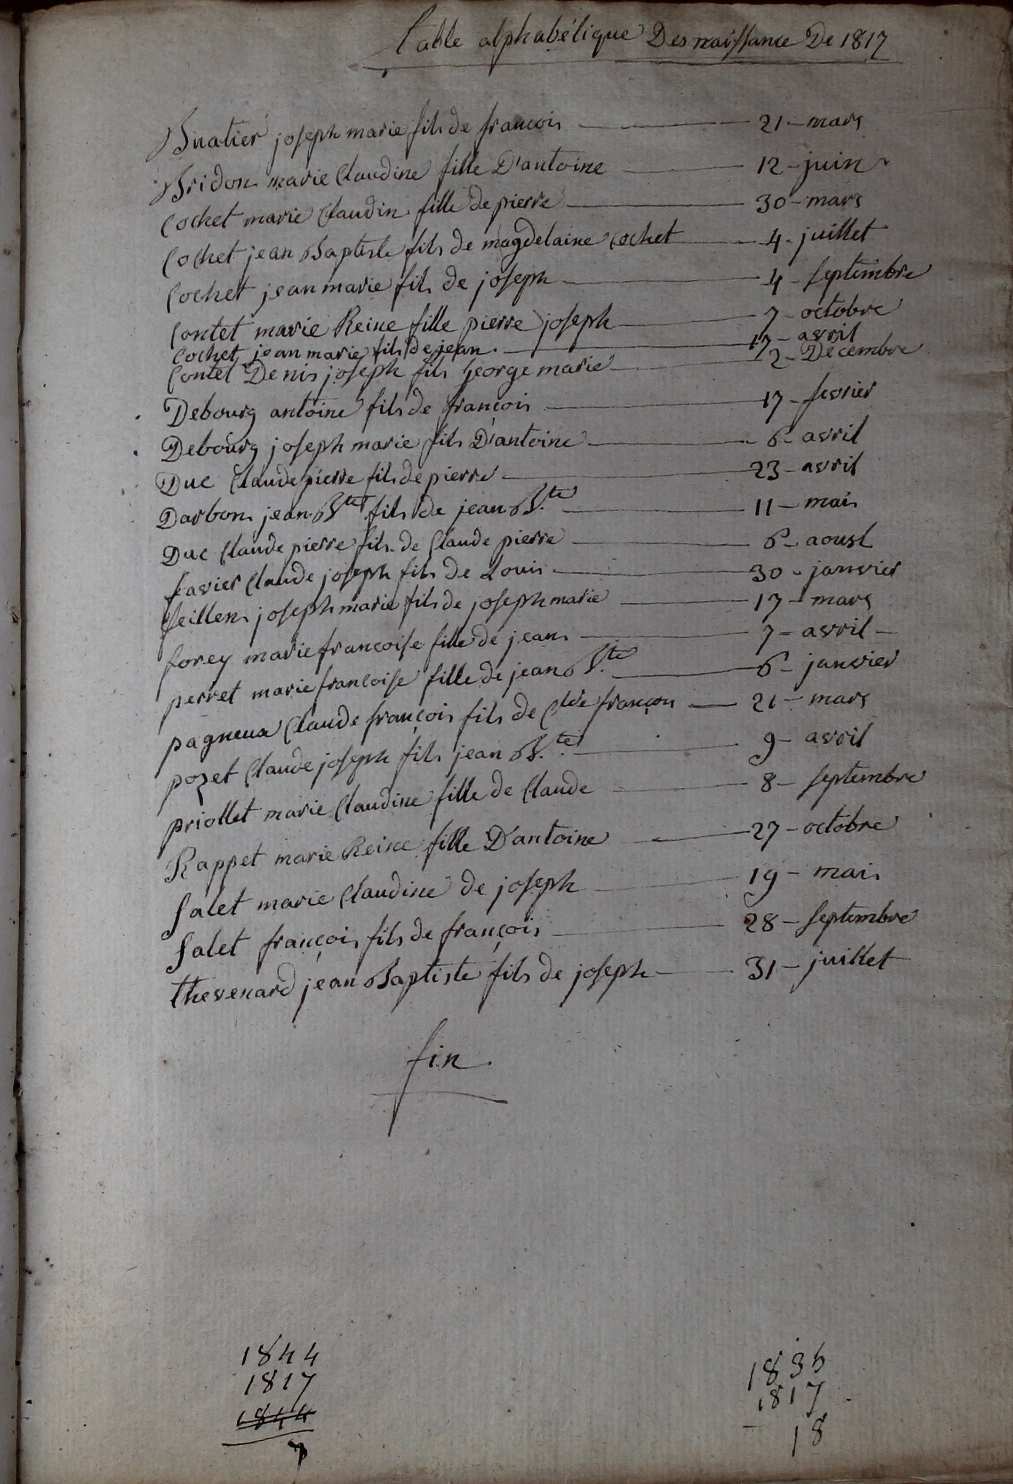 Table alphabétique Des naissance De 1817
Buatier joseph marie fils de françois 21 - mars
Bridon marie Claudine fille D'antoine 12 - juin
Cochet marie Claudin fille de pierre 30 - mars
Cochet jean Baptiste fils de magdelaine Cochet 4 - juillet
Cochet jean marie fils de joseph 4 - septembre
Contet marie Reine fille pierre joseph 7 - octobre
Cochet jean marie fils de jean 17 - avril
Contet Denis joseph fils George marie 2 - Décembre
Debourg antoine fils de françois 17 - fevrier
Debourg joseph marie fils D'antoine 6 - avril
Duc Claude pierre fils de pierre 23 - avril
Darbon jean Bte fils de jean Bte 11 - mais
Duc Claude pierre fils de Claude pierre 6 - aoust
favier Claude joseph fils de Louis 30 - janvier
feillens joseph marie fils de joseph marie 17 - mars
forey marie francoise fille de jean 7 - avril
perret marie francoise fille de jean Bte 6 - janvier
pagneux Claude françois fils de Clde françois 21 - mars
pozet Claude joseph fils jean Bte 9 - avril
priollet marie Claudine fille de Claude 8 - septembre
Rappet marie Reine fille D'antoine 27 - octobre
Salet marie Claudine de joseph 19 - mais
Salet françois fils de françois 28 - septembre
thevenard jean Baptiste fils de joseph 31 - juillet
fin
1844
1817
1844
7
1836
1817
18